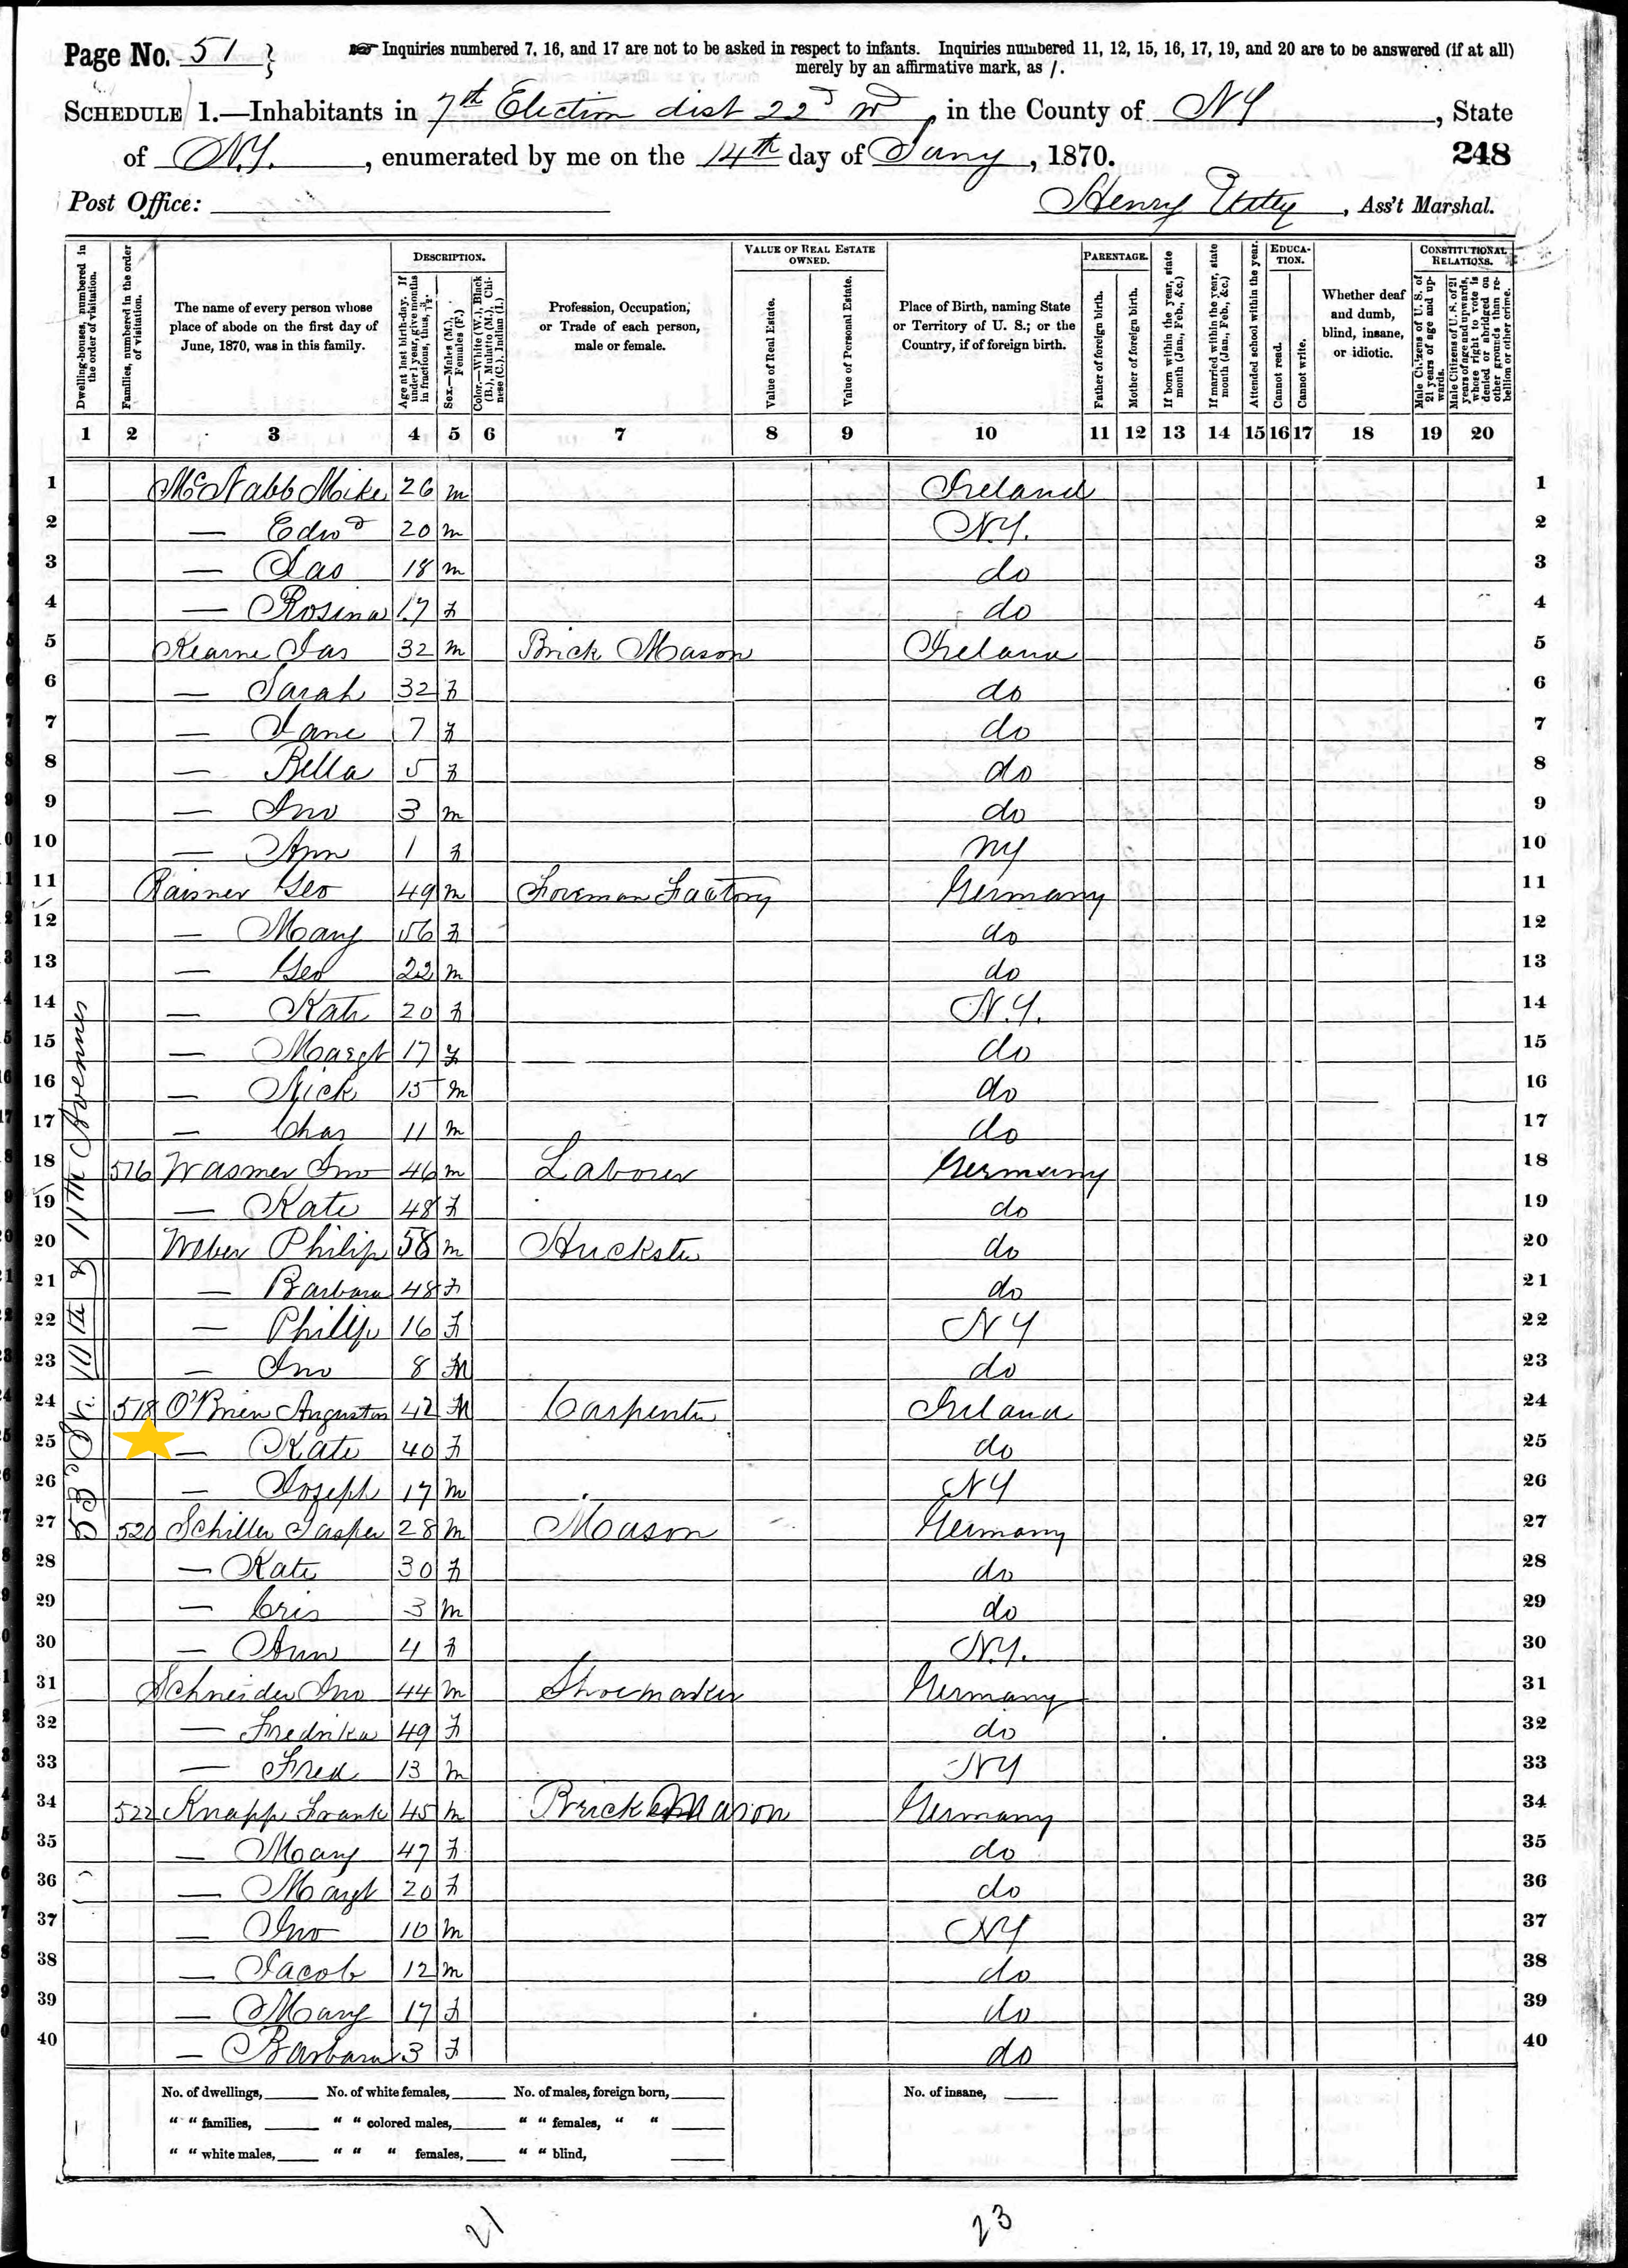 Page No. 51
Inquiries numbered 7, 16, and 17 are not to be asked in respect to infants. Inquiries numbered 11, 12, 15, 16, 17, 19, and 20 are to be answered (if at all)
merely by an affirmative mark, as /.
SCHEDULE 1.—Inhabitants in 7th Election dist 22d Wd, in the County of NY, State
of N.Y., enumerated by me on the 14th day of Jany, 1870.
248
Post Office:
Henry, Ass't Marshal.
Dwelling-houses, numbered in the order of visitation.
Families, numbered in the order of visitation.
The name of every person whose place of abode on the first day of June, 1870, was in this family.
DESCRIPTION.
Age at last birth-day. If under 1 year, give months in fractions, thus, 3/12.
Sex.—Males (M.), Females (F.)
Color.—White (W.), Black (B.), Mulatto (M.), Chinese (C.), Indian (I.)
Profession, Occupation, or Trade of each person, male or female.
VALUE OF REAL ESTATE OWNED.
Value of Real Estate.
Value of Personal Estate.
Place of Birth, naming State or Territory of U. S.; or the Country, if of foreign birth.
PARENTAGE.
Father of foreign birth.
Mother of foreign birth.
If born within the year, state month (Jan., Feb., &c.)
If married within the year, state month (Jan., Feb., &c.)
Attended school within the year.
EDUCATION.
Cannot read.
Cannot write.
Whether deaf and dumb, blind, insane, or idiotic.
CONSTITUTIONAL RELATIONS.
Male Citizens of U. S. of 21 years of age and upwards.
Male Citizens of U. S. of 21 years of age and upwards, whose right to vote is denied or abridged on other grounds than rebellion or other crime.
1 2 3 4 5 6 7 8 9 10 11 12 13 14 15 16 17 18 19 20
1 McNabb Mike 26 m Ireland 1
2 — Edwd 20 m N.Y. 2
3 — Jas 18 m do 3
4 — Rosina 17 f do 4
5 Kearne Jas 32 m Brick Mason Ireland 5
6 — Sarah 32 f do 6
7 — Jane 7 f do 7
8 — Bella 5 f do 8
9 — Jno 3 m do 9
10 — Ann 1 f NY 10
11 Raisner Geo 49 m Foreman Factory Germany 11
12 — Mary 56 f do 12
13 — Geo 22 m do 13
14 — Kate 20 f N.Y. 14
15 — Margt 17 f do 15
16 — Nick 15 m do 16
17 — Chas 11 m do 17
18 516 Wasmer Jno 46 m Labourer Germany 18
19 — Kate 48 f do 19
20 Weber Philip 58 m Huckster do 20
21 — Barbara 48 f do 21
22 — Philip 16 f NY 22
23 — Jno 8 M do 23
24 518 O'Brien Augustus 42 M Carpenter Ireland 24
25 — Kate 40 f do 25
26 — Joseph 17 m NY 26
27 520 Schiller Jasper 28 m Mason Germany 27
28 — Kate 30 f do 28
29 — Cris 3 m do 29
30 — Ann 4 f N.Y. 30
31 Schneider Jno 44 m Shoemaker Germany 31
32 — Fredrika 49 f do 32
33 — Fred 13 m NY 33
34 522 Knapp Frank 45 m Brick Mason Germany 34
35 — Mary 47 f do 35
36 — Margt 20 f do 36
37 — Jno 10 m NY 37
38 — Jacob 12 m do 38
39 — Mary 17 f do 39
40 — Barbara 3 f do 40
53d St. 10th & 11th Avenues
No. of dwellings, No. of white females, No. of males, foreign born, No. of insane,
" " families, " " colored males, " " females, " "
" " white males, " " " females, " " blind,
21 23